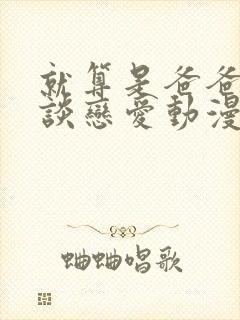 就算是爸爸
談戀愛動漫
蛐蛐唱歌